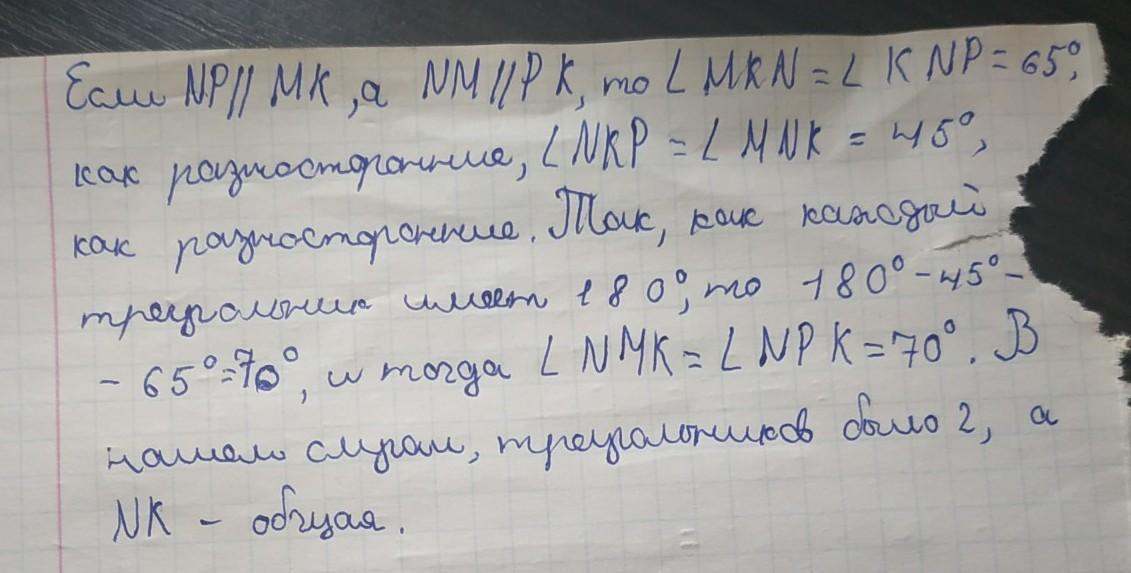 Если NP//MK, а NM//PK, то ∠MKN=∠KNP=65°,
как разносторонние, ∠NKP=∠MNK=45°,
как разносторонние. Так, как каждый
треугольник имеет 180°, то 180°-45°-
-65°=70°, и тогда ∠NMK=∠NPK=70°. В
нашем случаи, треугольников было 2, а
NK - общая.